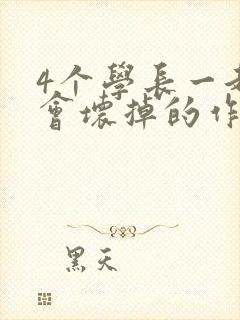 4个學長一起
會壞掉的作
黑天